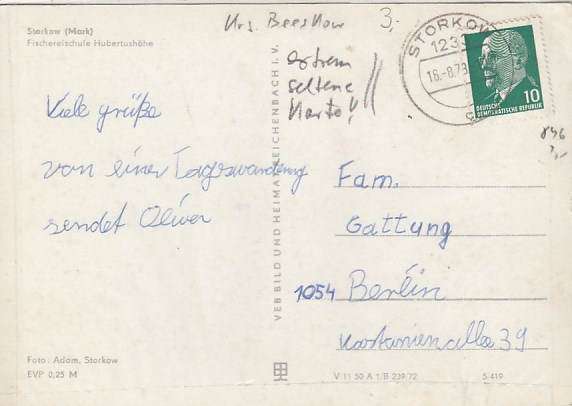 Storkow (Mark)
Fischereischule Hubertushöhe
Krs. Beeskow
3,-
extrem
seltene
Karte!
STORKOW
1233
16.-8.73
10
DEUTSCHE
DEMOKRATISCHE REPUBLIK
Viele grüße
von einer Tageswanderung
sendet Oliver
VEB BILD UND HEIMAT REICHENBACH I. V.
Fam.
Gattung
1054 Berlin
Kastanienallee 39
Foto: Adam, Storkow
EVP 0,25 M
V 11 50 A 1/B 239/72 5/419